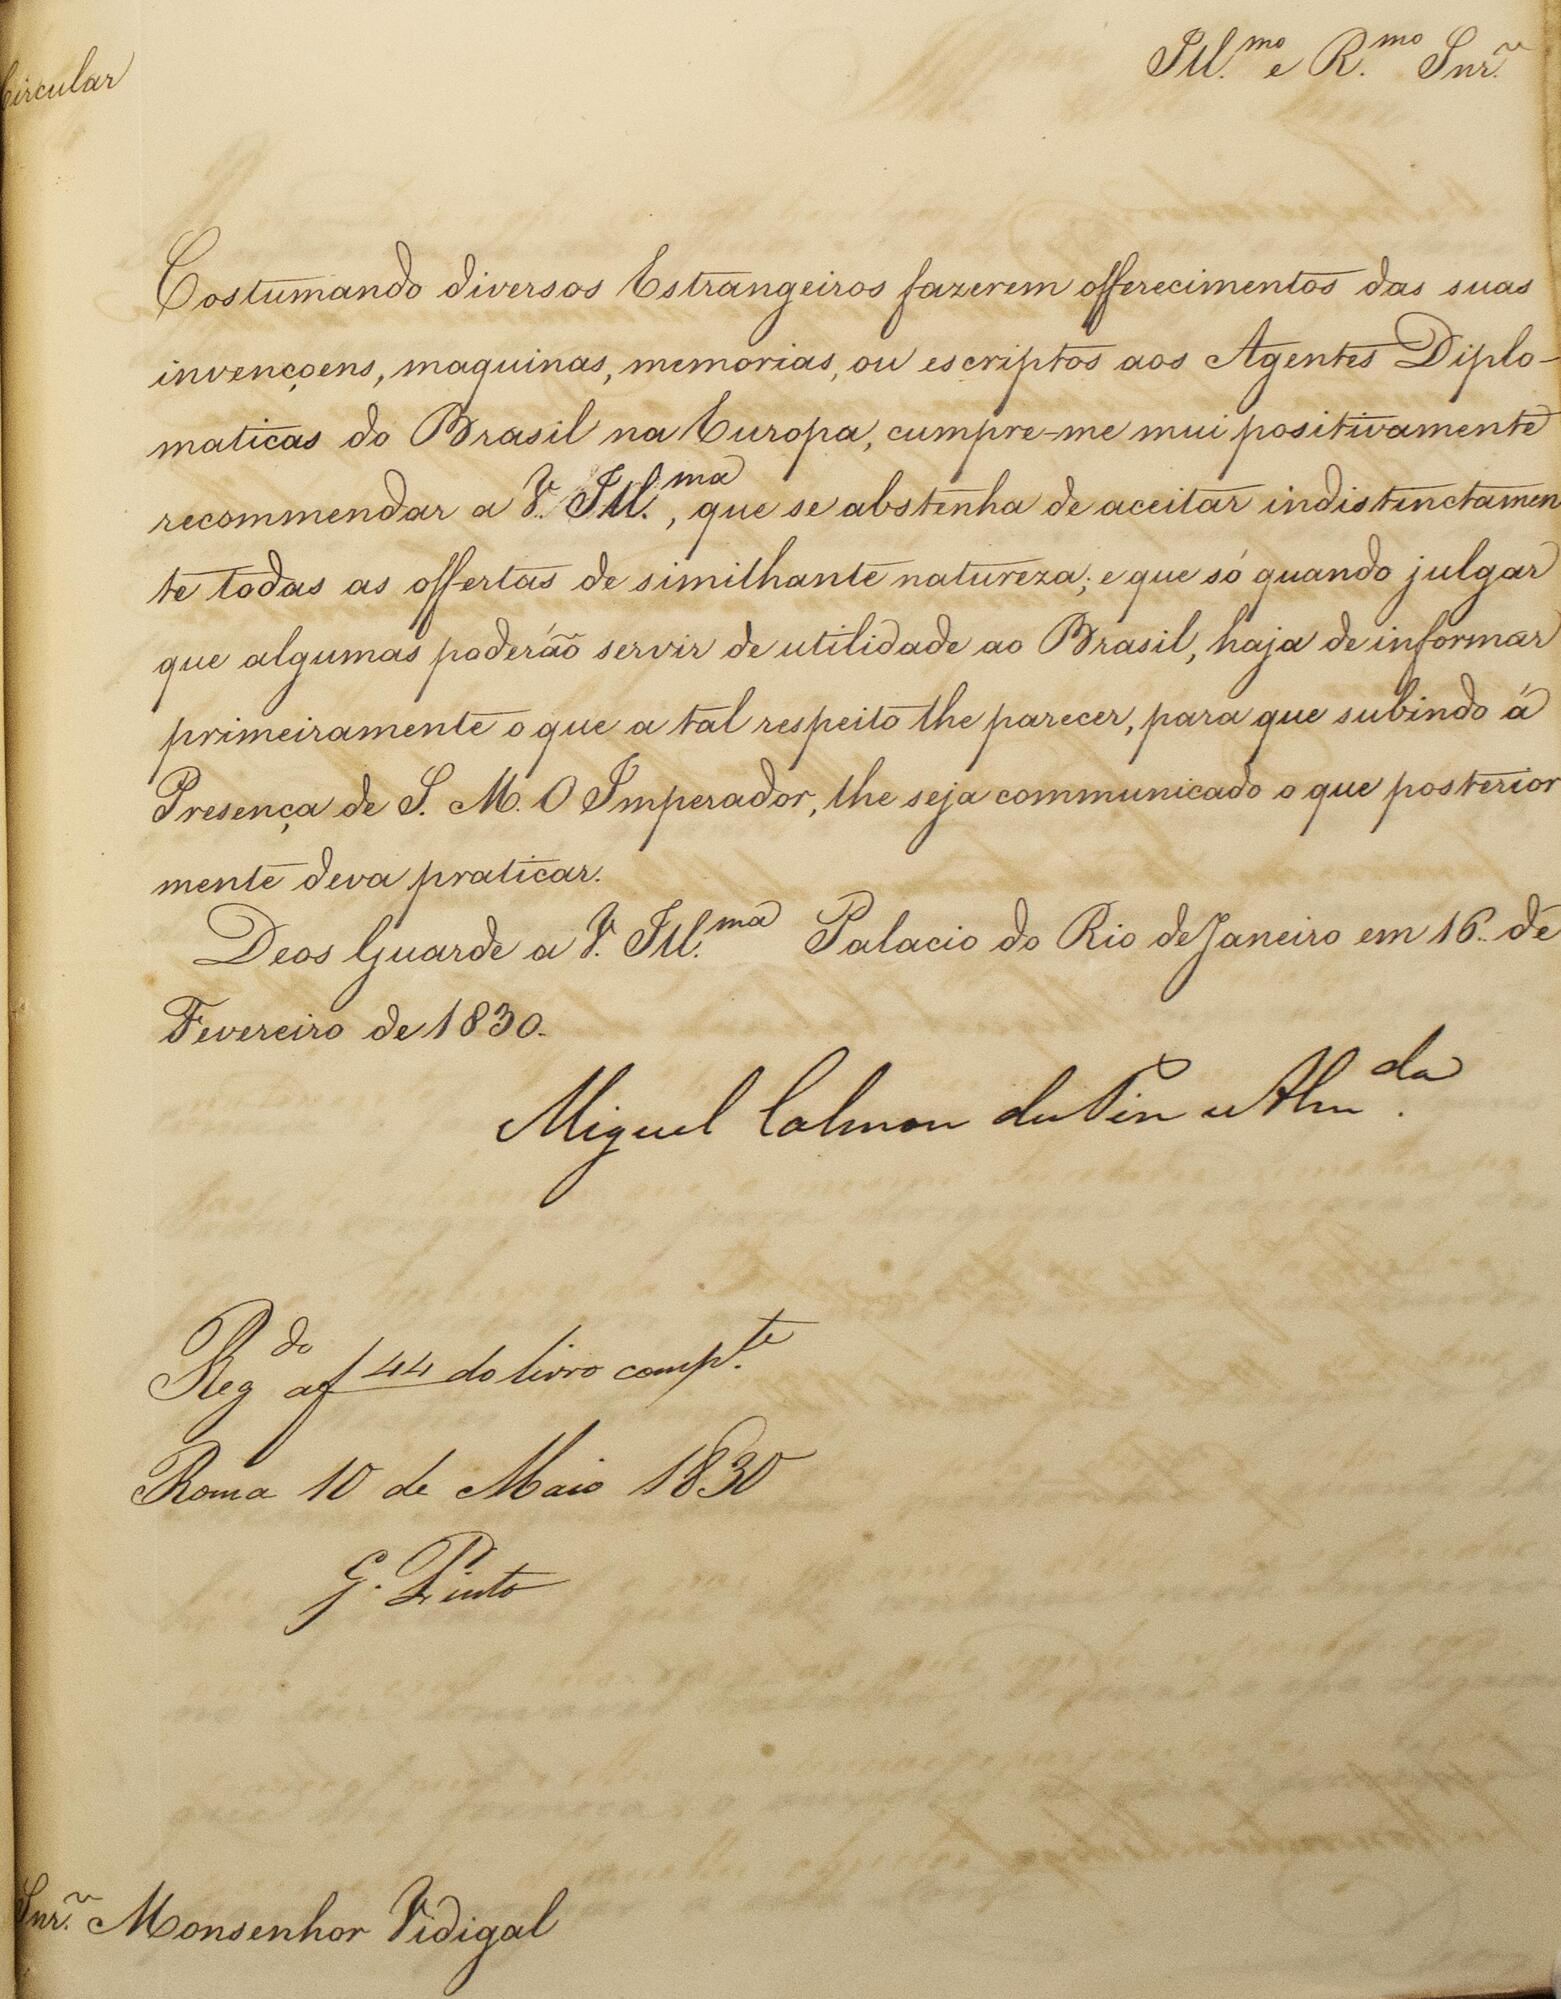 Circular
Ill.mo e R.mo Snr.
Costumando diversos Estrangeiros fazerem offerecimentos das suas
invençoens, maquinas, memorias, ou escriptos aos Agentes Diplo-
maticas do Brasil na Europa, cumpre-me mui positivamente
recommendar a V. Ill.ma, que se abstenha de aceitar indistinctamen
te todas as offertas de similhante natureza; e que só quando julgar
que algumas poderáõ servir de utilidade ao Brasil, haja de informar
primeiramente o que a tal respeito lhe parecer, para que subindo á
Presença de S. M. O Imperador, lhe seja communicado o que posterior
mente deva praticar.
Deos Guarde a V. Ill.ma Palacio do Rio de Janeiro em 16 de
Fevereiro de 1830.
Miguel Calmon du Pin e Alm.da
Reg.do a f 44 do livro comp.te
Roma 10 de Maio 1830
G. Pinto
Snr. Monsenhor Vidigal